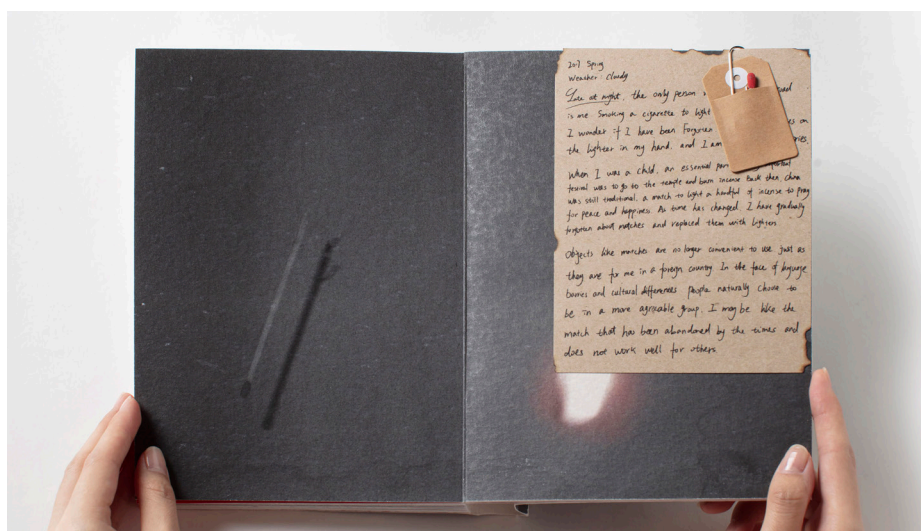 Spring
Weather : Cloudy
Late at night, the only person
is me. Smoking a cigarette to light
I wonder if I have been Forgotten on
the lighter in my hand. and I am
When I was a child, an essential
festival was to go to the temple and burn incense Back then, China
was still traditional, a match to light a handful of incense to pray
for peace and happiness. As time has changed. I have gradually
forgotten about matches and replaced them with lighters
Objects like matches are no longer convenient to use just as
they are for me in a foreign country. In the face of language
barries and cultural differences people naturally choose to
be in a more agreeable group. I may be like the
match that has been abandoned by the times and
does not work well for others